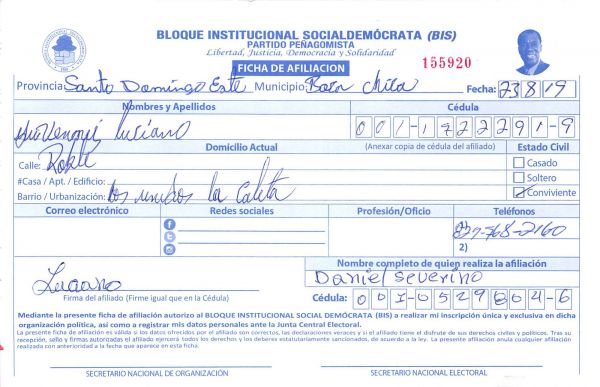 BLOQUE INSTITUCIONAL SOCIALDEMÓCRATA (BIS)
PARTIDO PEÑAGOMISTA
Libertad, Justicia, Democracia y Solidaridad
FICHA DE AFILIACION
155920
Provincia: Santo Domingo Este Municipio: Boca Chica Fecha: 23 8 19
Nombres y Apellidos Cédula
Luciano 001-1722291-9
Domicilio Actual (Anexar copia de cédula del afiliado) Estado Civil
Calle: Roble Casado
#Casa / Apt. / Edificio: Soltero
Barrio / Urbanización: los la Caleta Conviviente
Correo electrónico Redes sociales Profesión/Oficio Teléfonos
1) 829-768-2160
2)
Nombre completo de quien realiza la afiliación
Luciano Daniel Severino
Firma del afiliado (Firme igual que en la Cédula) Cédula: 001-0529804-6
Mediante la presente ficha de afiliación autorizo al BLOQUE INSTITUCIONAL SOCIAL DEMÓCRATA (BIS) a realizar mi inscripción única y exclusiva en dicha
organización política, así como a registrar mis datos personales ante la Junta Central Electoral.
La presente ficha de afiliación es válida si los datos ofrecidos por el afiliado son correctos, las declaraciones veraces y si el afiliado tiene el disfrute de sus derechos civiles y políticos. Tras su
recepción, sello y firmas autorizadas el afiliado ejercerá todos los derechos y los deberes estatutariamente sancionados, de acuerdo a la ley. La presente afiliación anula cualquier afiliación
realizada con anterioridad a la fecha que aparece en esta ficha.
SECRETARIO NACIONAL DE ORGANIZACIÓN SECRETARIO NACIONAL ELECTORAL